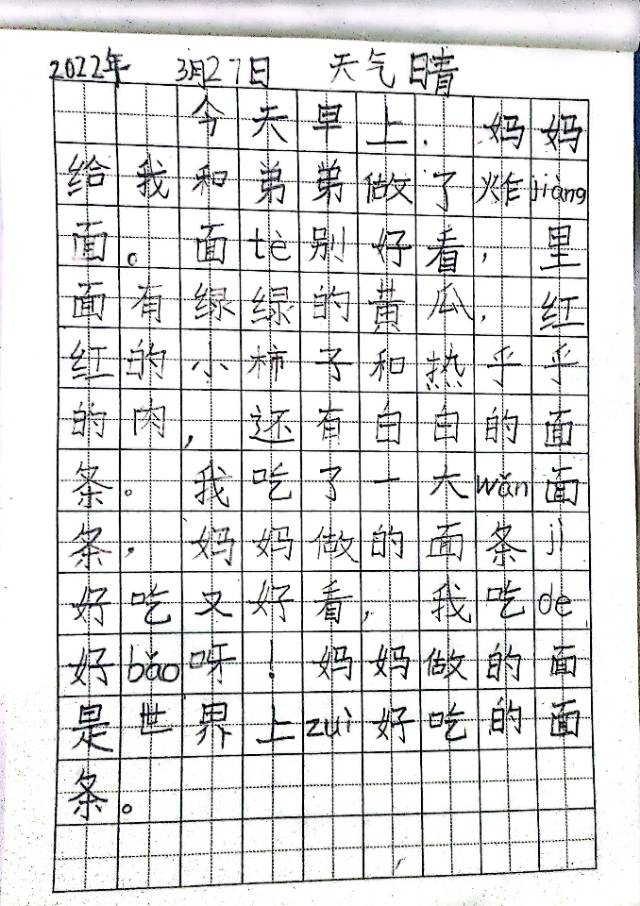 2022年 3月27日 天气 晴
今天早上.妈妈
给我和弟弟做了炸jiàng
面。面tè别好看,里
面有绿绿的黄瓜,红
红的小柿子和热乎乎
的肉,还有白白的面
条。我吃了一大wǎn面
条,妈妈做的面条jì
好吃又好看,我吃de
好bǎo呀!妈妈做的面
是世界上zuì好吃的面
条。